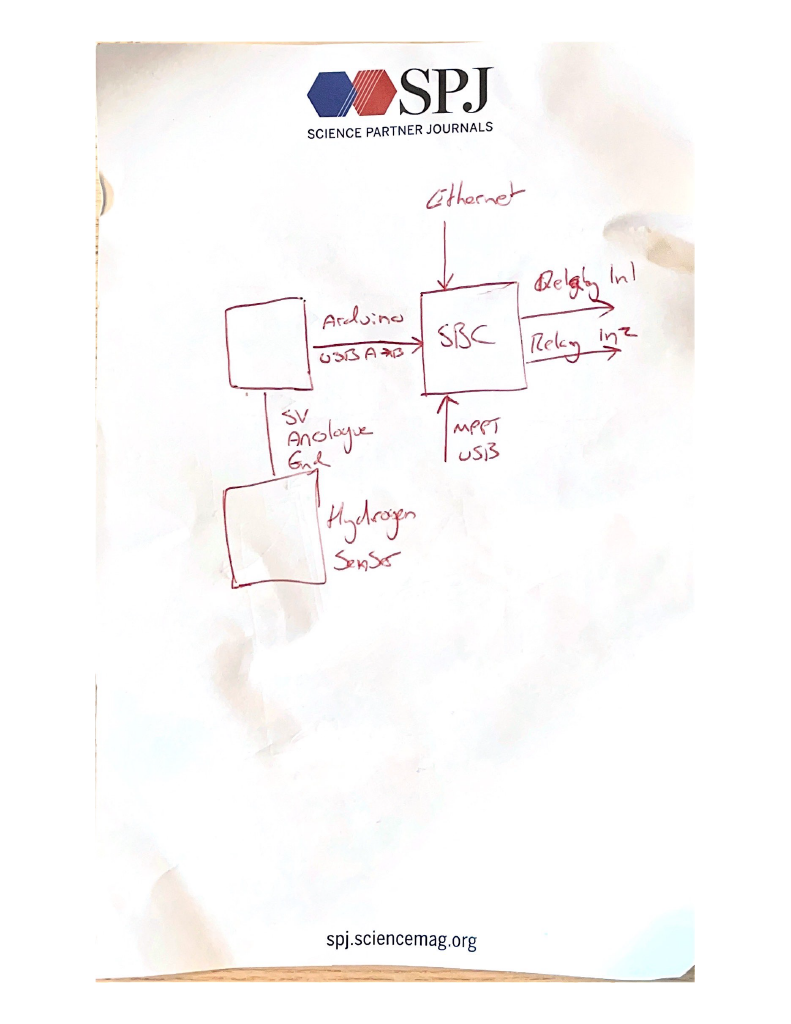 SPJ
SCIENCE PARTNER JOURNALS
Ethernet
Relay In1
Arduino
USB A→B
SBC
Relay in2
5V
Analogue
Gnd
MPPT
USB
Hydrogen
Sensor
spj.sciencemag.org